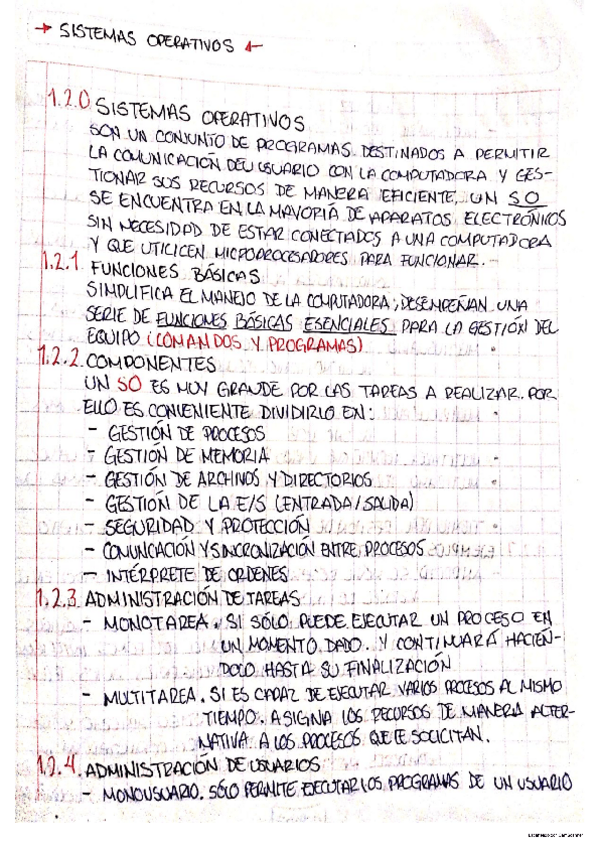 → SISTEMAS OPERATIVOS ←
1.2.0 SISTEMAS OPERATIVOS
SON UN CONJUNTO DE PROGRAMAS DESTINADOS A PERMITIR
LA COMUNICACIÓN DEL USUARIO CON LA COMPUTADORA Y GES-
TIONAR SUS RECURSOS DE MANERA EFICIENTE. UN SO
SE ENCUENTRA EN LA MAYORIA DE APARATOS ELECTRÓNICOS
SIN NECESIDAD DE ESTAR CONECTADOS A UNA COMPUTADORA
Y QUE UTILICEN MICROPROCESADORES PARA FUNCIONAR.-
1.2.1 FUNCIONES BÁSICAS
SIMPLIFICA EL MANEJO DE LA COMPUTADORA; DESEMPEÑAN UNA
SERIE DE FUNCIONES BÁSICAS ESENCIALES PARA LA GESTIÓN DEL
EQUIPO (COMANDOS Y PROGRAMAS)
1.2.2. COMPONENTES
UN SO ES MUY GRANDE POR LAS TAREAS A REALIZAR. POR
ELLO ES CONVENIENTE DIVIDIRLO EN:
- GESTIÓN DE PROCESOS
- GESTIÓN DE MEMORIA
- GESTIÓN DE ARCHIVOS Y DIRECTORIOS
- GESTIÓN DE LA E/S (ENTRADA/SALIDA)
- SEGURIDAD Y PROTECCIÓN
- COMUNCACIÓN Y SINCRONIZACIÓN ENTRE PROCESOS
- INTÉRPRETE DE ORDENES
1.2.3 ADMINISTRACIÓN DE TAREAS
- MONOTAREA. SI SÓLO PUEDE EJECUTAR UN PROCESO EN
UN MOMENTO DADO. Y CONTINUARÁ HACIEN-
DOLO HASTA SU FINALIZACIÓN
- MULTITAREA. SI ES CAPAZ DE EJECUTAR VARIOS PROCESOS AL MISMO
TIEMPO. ASIGNA LOS RECURSOS DE MANERA ALTER-
NATIVA A LOS PROCESOS QUE LE SOLICITAN.
1.2.4. ADMINISTRACIÓN DE USUARIOS
- MONOUSUARIO. SÓLO PERMITE EJECUTAR LOS PROGRAMAS DE UN USUARIO